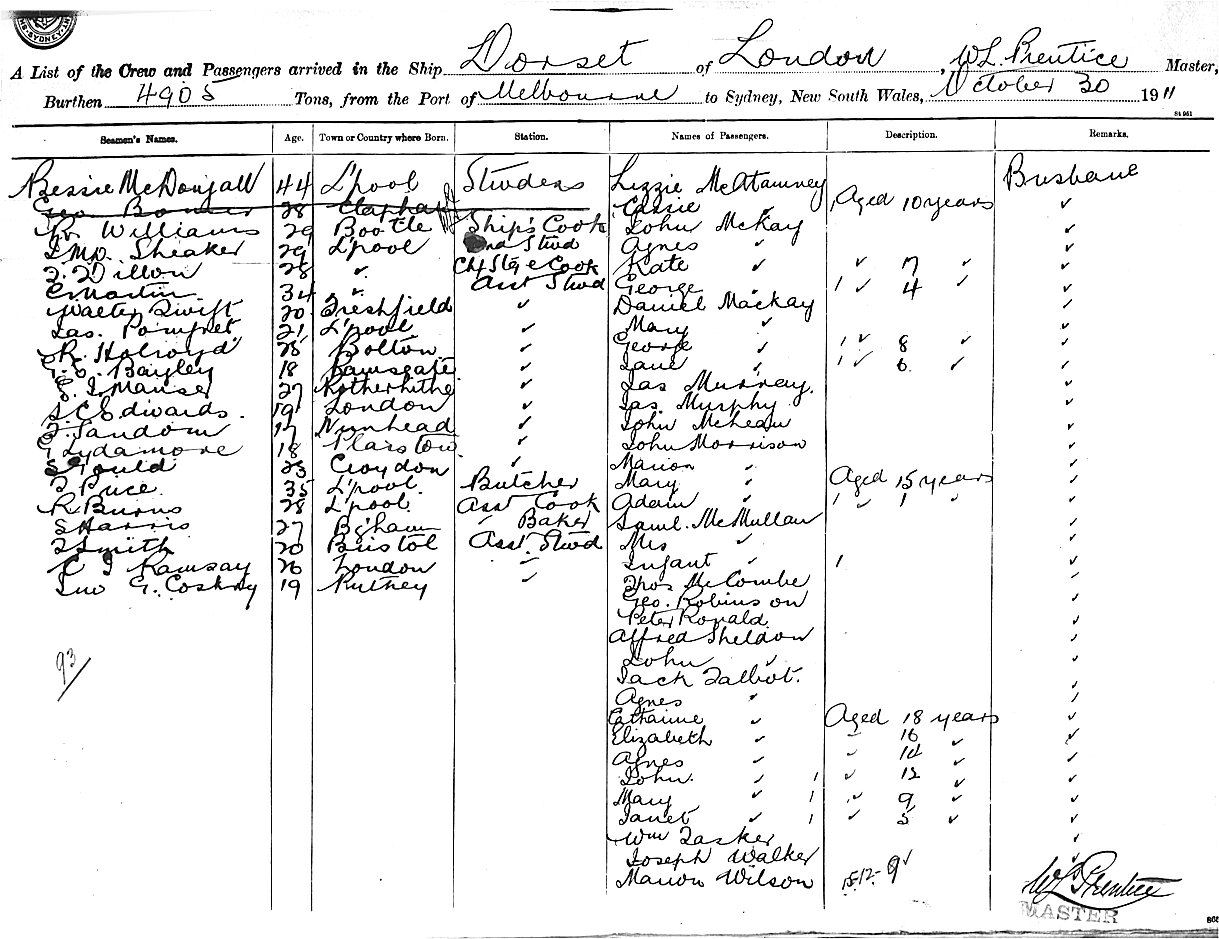 SYDNEY
A List of the Crew and Passengers arrived in the Ship Dorset of London, W L Prentice Master,
Burthen 4905 Tons, from the Port of Melbourne to Sydney, New South Wales, October 30 1911
Seamen's Names. Age. Town or Country where Born. Station. Names of Passengers. Description. Remarks.
Bessie McDougall 44 L'pool Stwdess Lizzie McAtamney Brisbane
Geo 28 Clapham Cassie ✓ 1, Aged 10 years ✓
Williams 29 Bootle Ship's Cook John McKay ✓
Sheaker 29 L'pool 2nd Stwd Agnes ✓ ✓
Dillon 28 ✓ Ch Stge Cook Kate ✓ ✓ 7 ✓ ✓
C Martin 34 ✓ Asst Stwd George ✓ 1 ✓ 4 ✓ ✓
Walter Swift 20 Freshfield ✓ Daniel Mackay ✓
Jas. Pomfret 21 L'pool ✓ Mary ✓ ✓
R. Holroyd 25 Bolton ✓ George ✓ 1 ✓ 8 ✓ ✓
Bayley 18 Ramsgate ✓ Jane ✓ 1 ✓ 6 ✓ ✓
Manser 27 Rotherhithe ✓ Jas Murray. ✓
S C Edwards. 19 London ✓ Jas. Murphy ✓
Sandom 17 Nunhead ✓ John ✓
Lydamore 18 Plaistow ✓ John Morrison ✓
Gould 23 Croydon ✓ Marion ✓ ✓
Price 35 L'pool. Butcher Mary ✓ Aged 15 years ✓
R Burns 28 L'pool. Asst Cook Adam ✓ 1 ✓ 1 ✓ ✓
S Harris 27 B'gham ✓ Baker Saml. McMullan ✓
Smith 20 Bristol Asst. Stwd Mrs ✓ ✓
Ramsay 26 London ✓ Infant ✓ 1 ✓
Jno G. 19 Putney ✓ Thos McCombe ✓
Geo. Robinson ✓
Peter Ronald ✓
Alfred Sheldon ✓
93
John ✓ ✓
Jack Talbot. ✓
Agnes ✓ ✓
Catharine ✓ Aged 18 years ✓
Elizabeth ✓ ✓ 16 ✓ ✓
Agnes ✓ ✓ 14 ✓ ✓
John. ✓ 1 ✓ 12 ✓ ✓
Mary ✓ 1 ✓ 9 ✓ ✓
Janet ✓ 1 ✓ 5 ✓ ✓
Wm Tasker ✓
Joseph Walker ✓
Marion Wilson 9 ✓ W L Prentice
MASTER